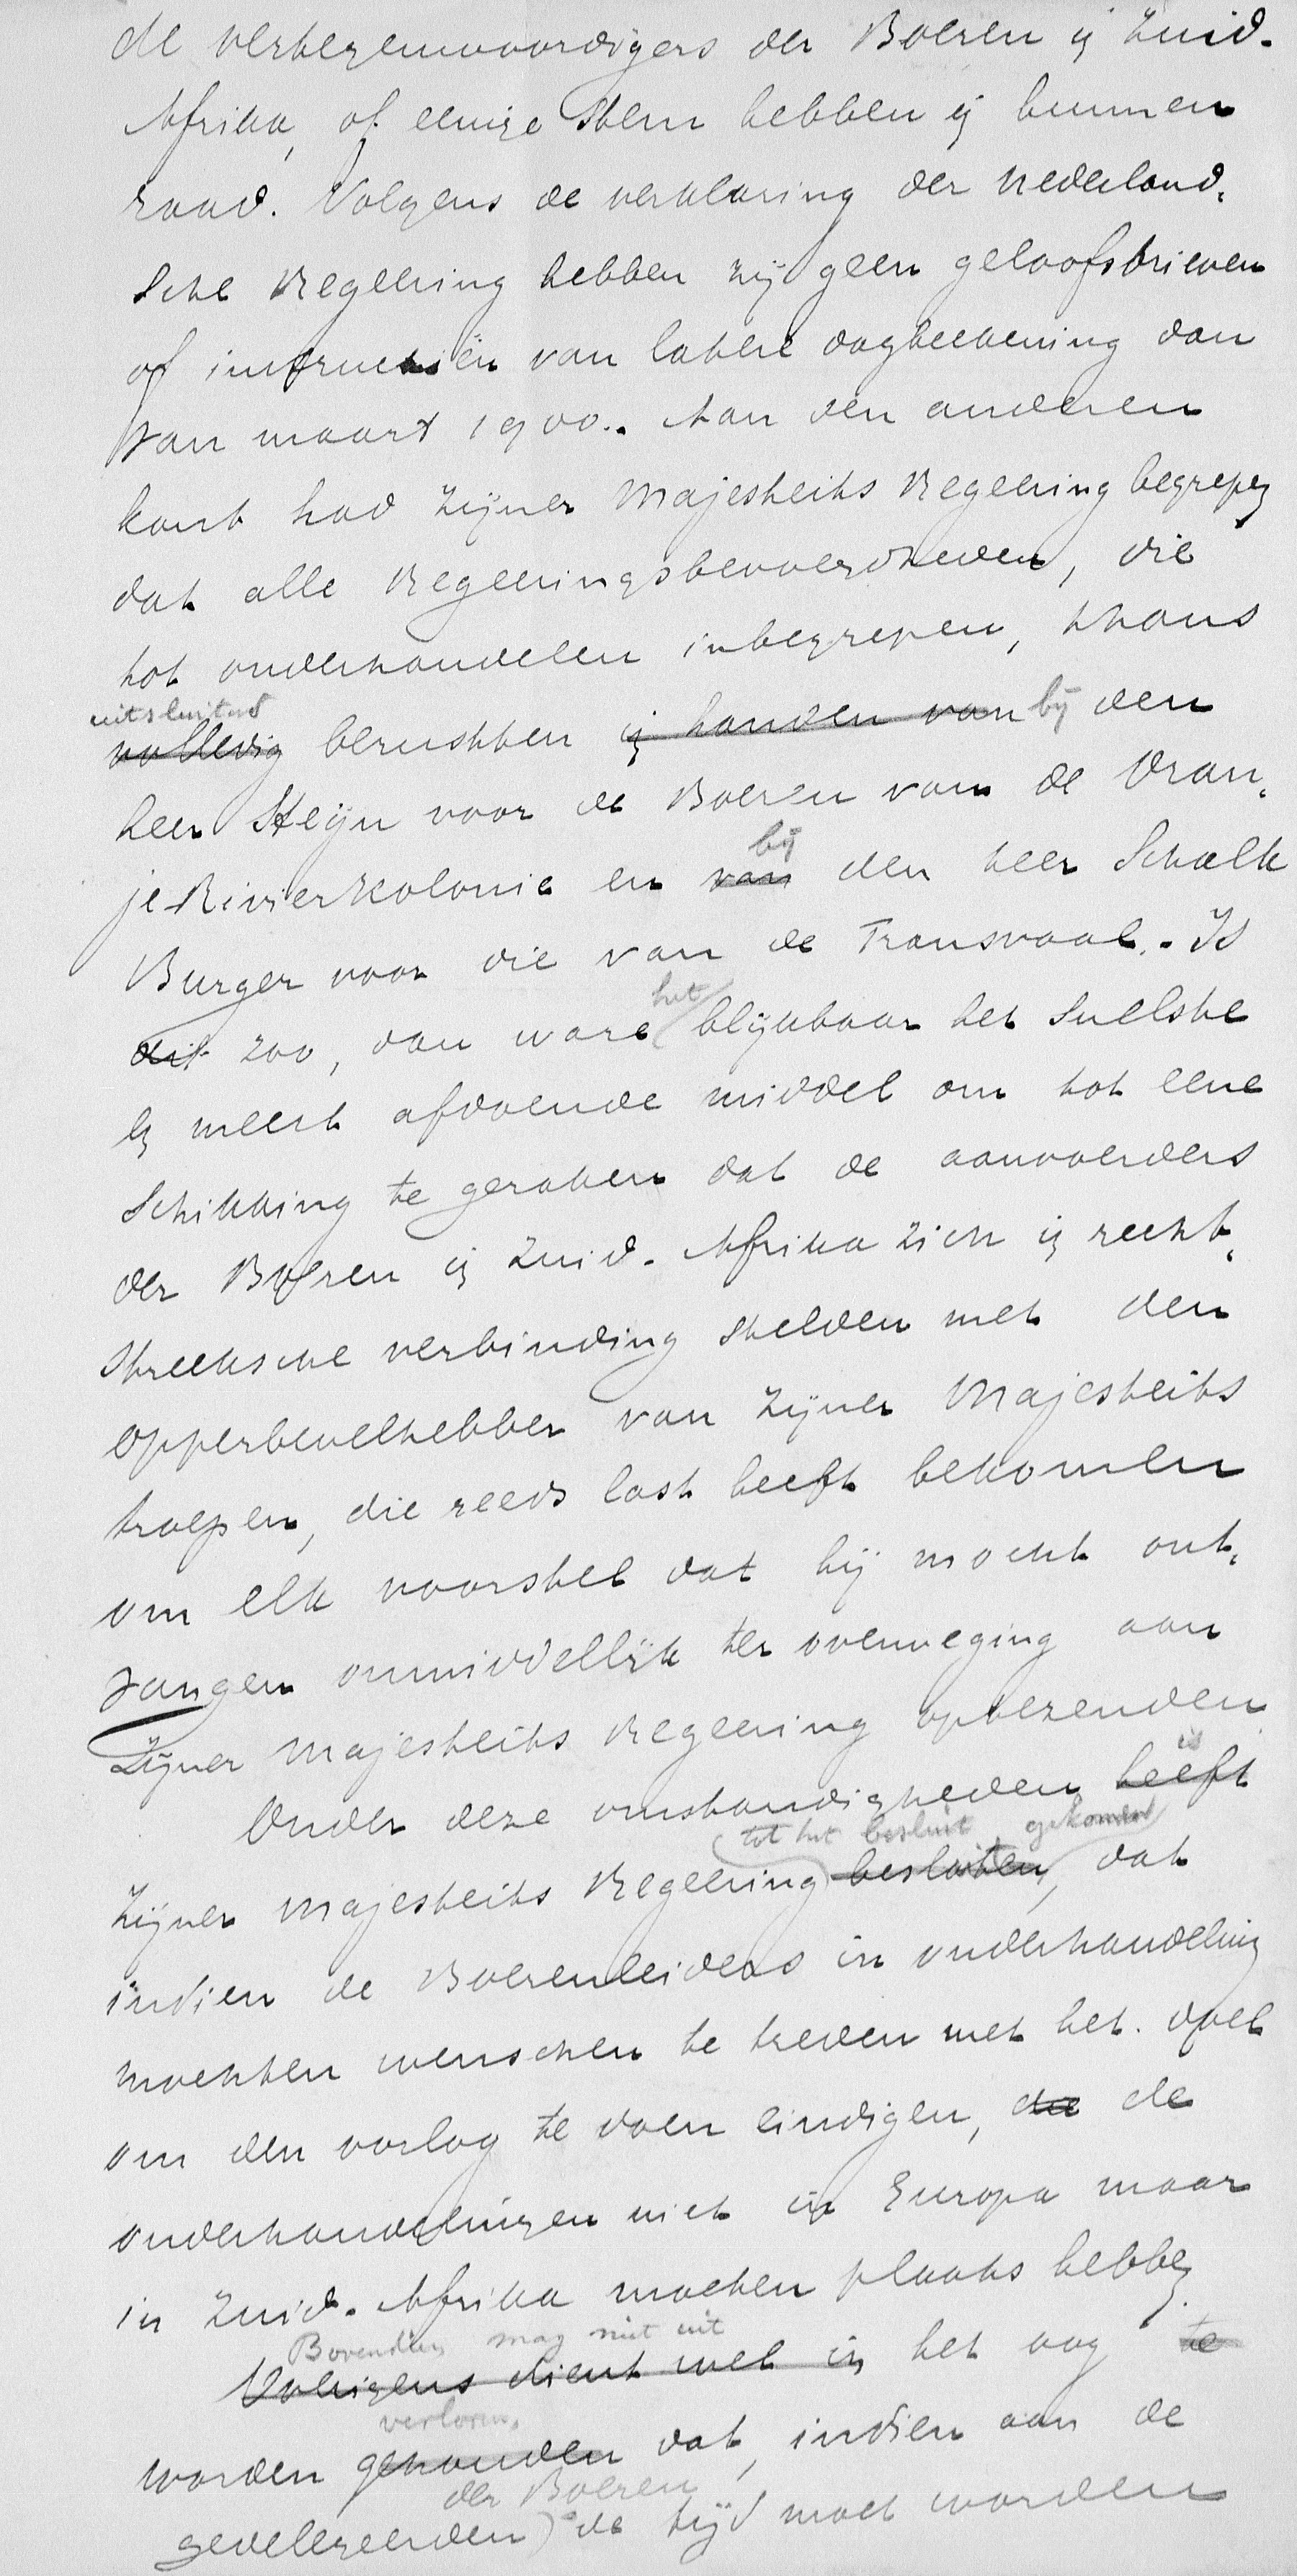 de vertegenwoordigers der Boeren in Zuid-
Afrika, of eenige stem hebben in hunnen
raad. Volgens de verklaring der Nederland-
sche Regeering hebben zij geen geloofsbrieven
of instructiën van latere dagteekening dan
van maart 1900.. Aan den anderen
kant had Zijner Majesteits Regeering begrepen
dat alle Regeeringsbevoegdheden, die
tot onderhandelen inbegrepen, thans
uitsluitend
volledig berustten in handen van bij den
heer Steijn voor de Boeren van de Oran-
bij
je-Rivierkolonie en van den heer Schalk
Burger voor die van de Transvaal. Is
het
dit zoo, dan ware blijkbaar het snelste
en meest afdoende middel om tot eene
schikking te geraken dat de aanvoerders
der Boeren in Zuid-Afrika zich in recht-
streeksche verbinding stelden met den
opperbevelhebber van Zijner Majesteits
troepen, die reeds last heeft bekomen
om elk voorstel dat hij mocht ont-
vangen onmiddellijk ter overweging aan
Zijner Majesteits Regeering optezenden
is
Onder deze omstandigheden heeft
tot het besluit gekomen
Zijner Majesteits Regeering besloten, dat
indien de Boerenleiders in onderhandeling
mochten wenschen te treden met het doel
om den oorlog te doen eindigen, die de
onderhandelingen niet in Europa maar
in Zuid-Afrika moeten plaats hebben.
Bovendien mag niet uit
Volgens dient wel in het oog te
verloren
worden gehouden dat, indien aan de
der Boeren
gedelegeerden de tijd moet worden